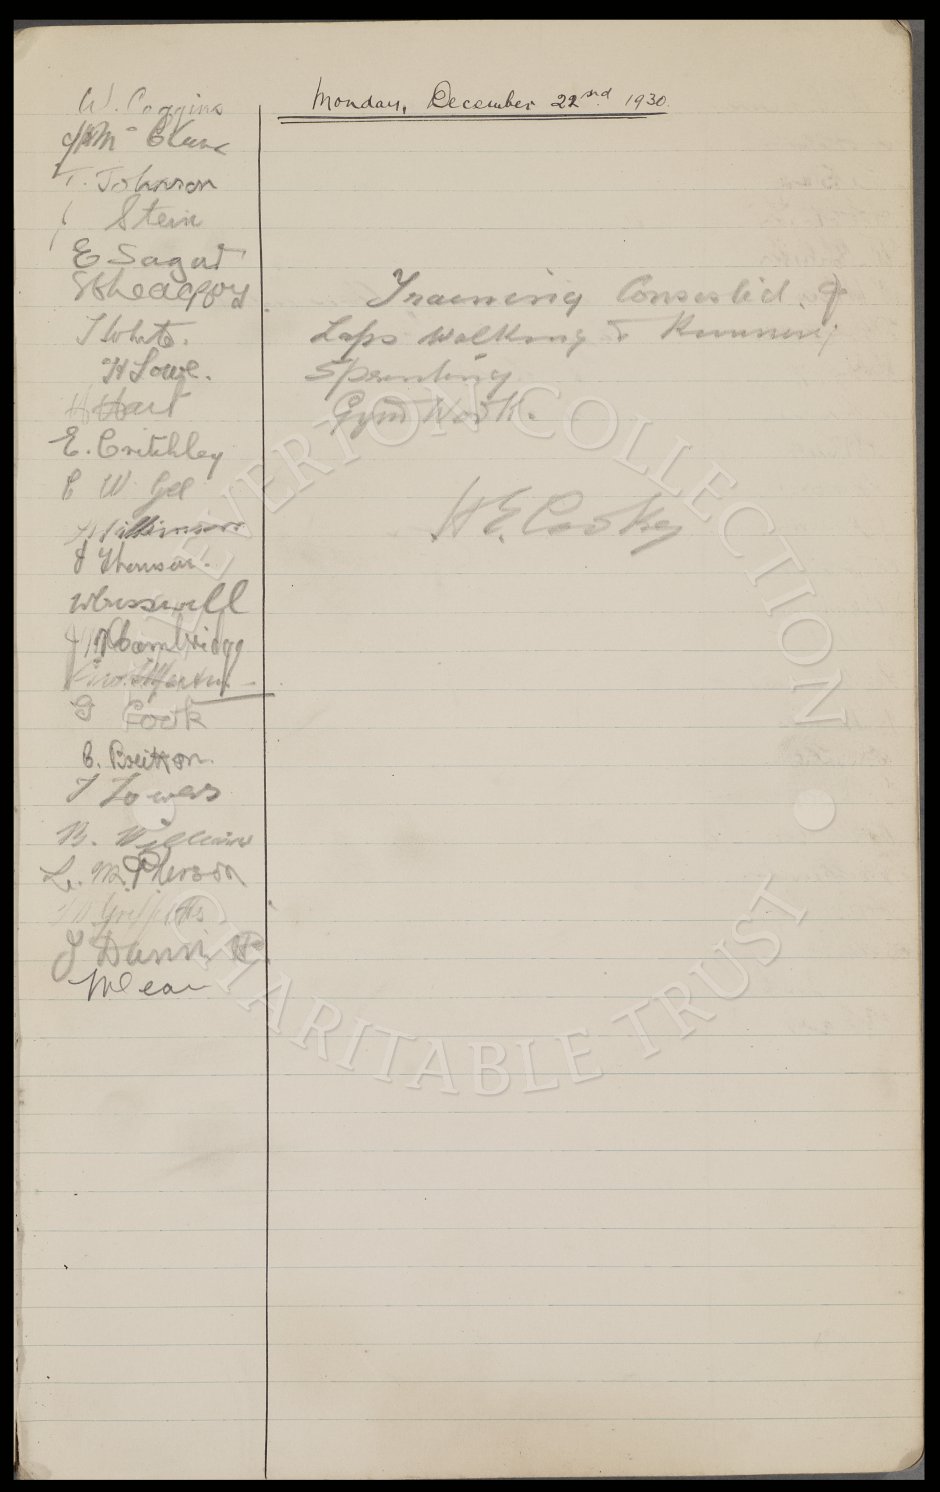 Monday, December 22nd 1930.
W. Coggins
J Mc Clure
T. Johnson
Stein
E Sagar
T White.
H Lowe.
H Hart
E. Critchley
C W Gee
J Thomson.
W Cresswell
Cook
C. Britton
T Lowers
B. Williams
L. McPherson
Griffiths
J Dunn
Training Consisted of
Laps Walking & Running
Sprinting
Gym Work.
H E. Cooke
EVERTON COLLECTION
CHARITABLE TRUST